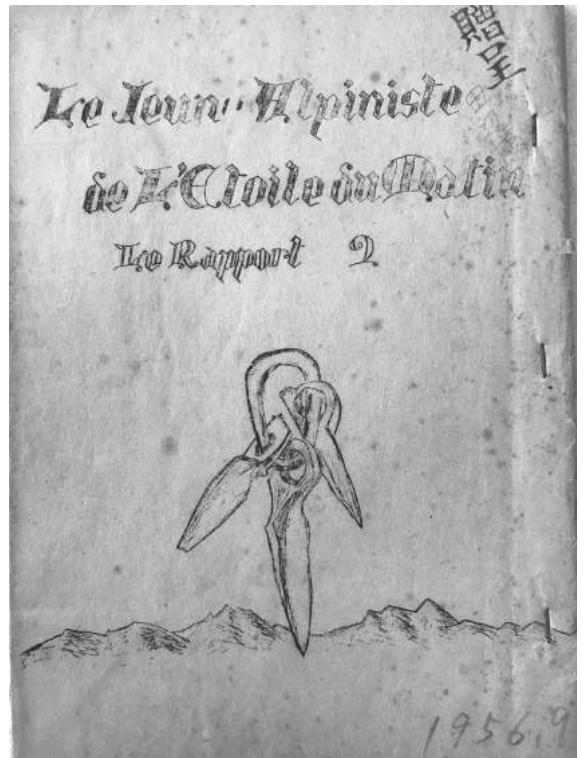 贈呈
Le Jeune Alpiniste
de L'Etoile du Matin
Le Rapport 2
1956,9